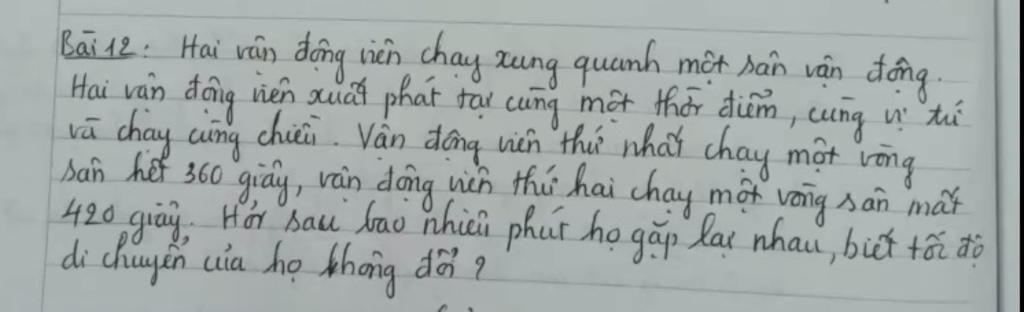 Bài 12: Hai vận động viên chạy xung quanh một sân vận động.
Hai vận động viên xuất phát tại cùng một thời điểm, cùng vị trí
và chạy cùng chiều. Vận động viên thứ nhất chạy một vòng
sân hết 360 giây, vận động viên thứ hai chạy một vòng sân mất
420 giây. Hỏi sau bao nhiêu phút họ gặp lại nhau, biết tốc độ
di chuyển của họ không đổi?